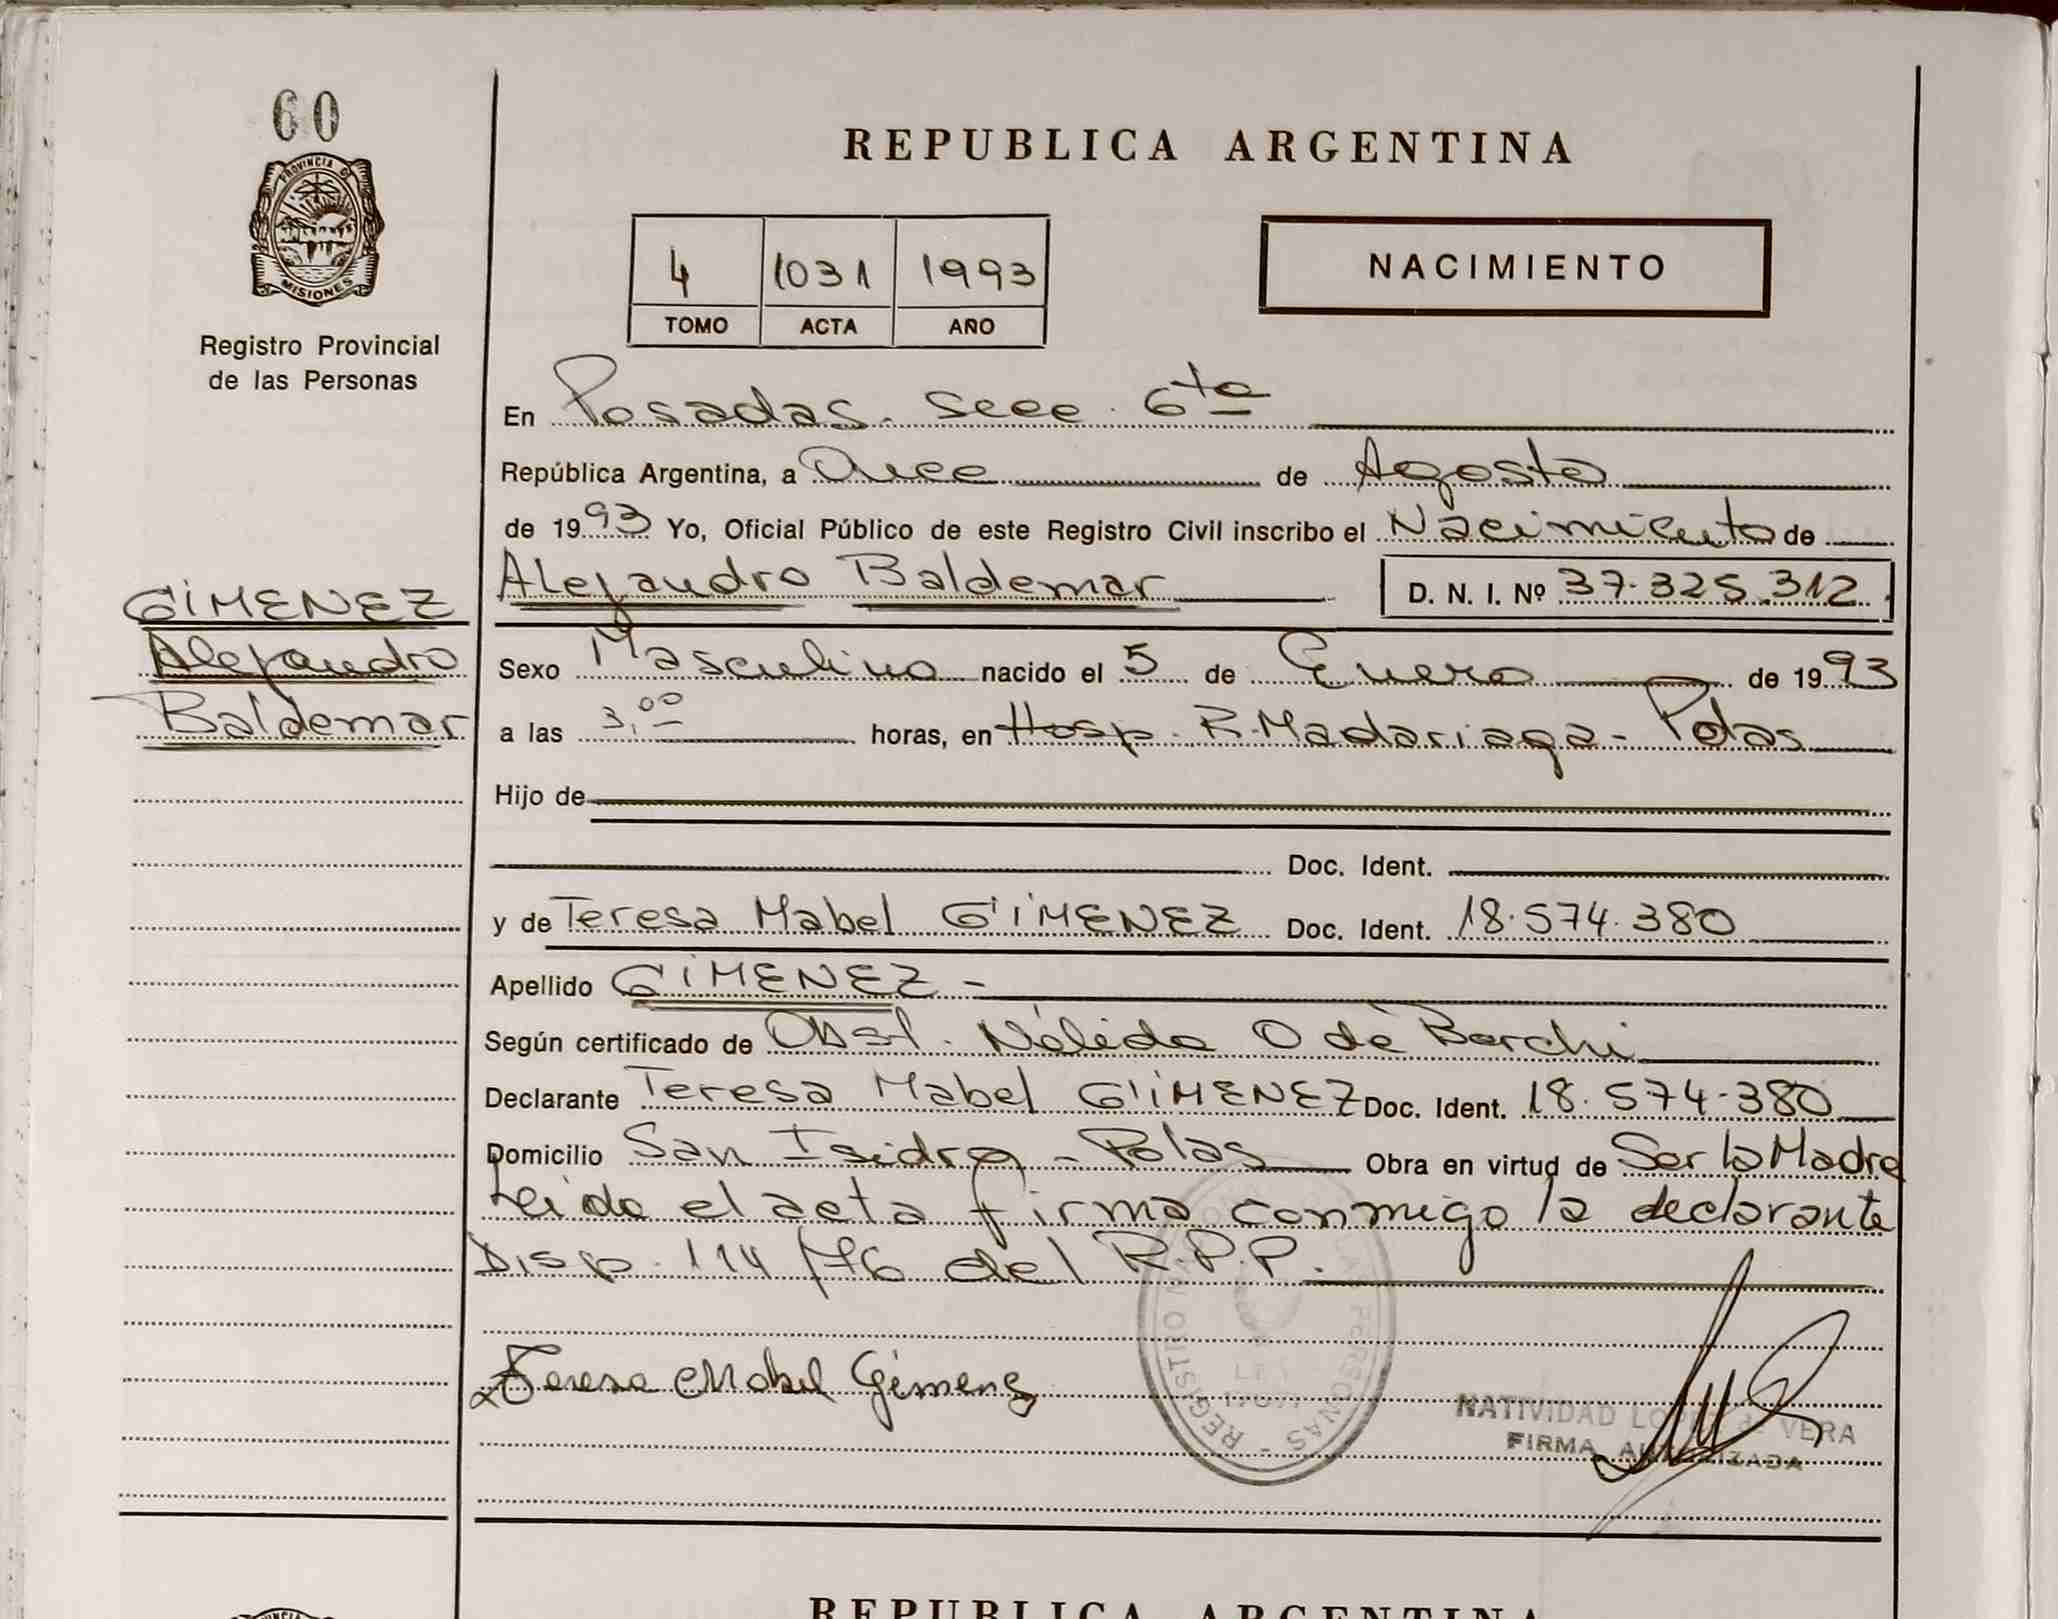 60
PROVINCIA D
MISIONES
Registro Provincial
de las Personas
REPUBLICA ARGENTINA
4 1031 1993
TOMO ACTA AÑO
NACIMIENTO
En Posadas. Secc. 6ta
República Argentina, a Once de Agosto
de 1993 Yo, Oficial Público de este Registro Civil inscribo el Nacimiento de
Alejandro Baldemar D. N. I. Nº 37.325.312
GIMENEZ
Alejandro
Baldemar
Sexo Masculino nacido el 5 de Enero de 1993
a las 3,00 horas, en Hosp. R. Madariaga - Pdas
Hijo de
Doc. Ident.
y de Teresa Mabel GIMENEZ Doc. Ident. 18.574.380
Apellido GIMENEZ -
Según certificado de Obst. Nélida O de Borchi
Declarante Teresa Mabel GIMENEZ Doc. Ident. 18.574.380
Domicilio San Isidro - Pdas Obra en virtud de Ser la Madre
Leida el acta firma conmigo la declarante
Disp. 114/76 del R.P.P.
Teresa Mabel Gimenez
REGISTRO LAS PERSONAS
NATIVIDAD LOPEZ de VERA
FIRMA AUTORIZADA
REPUBLICA ARGENTINA